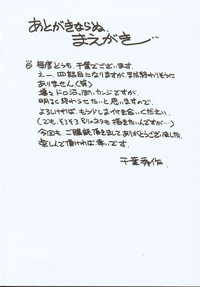 あとがきならぬ、
まえがき…
毎度どうも、千葉でございます。
えー、四話目になりますが、まだ終わりそうに
ありません(笑)
場々ドロ沼っぽいカンジですが、
明るく終わらせたいと思いますので、
よろしければ、もう少しおつき合いください。
(でも、そろそろ別のネタも描きたいんですが…)
今回も、ご購読頂きましてありがとうございました。
楽しんで頂ければ幸いです。
千葉秀作